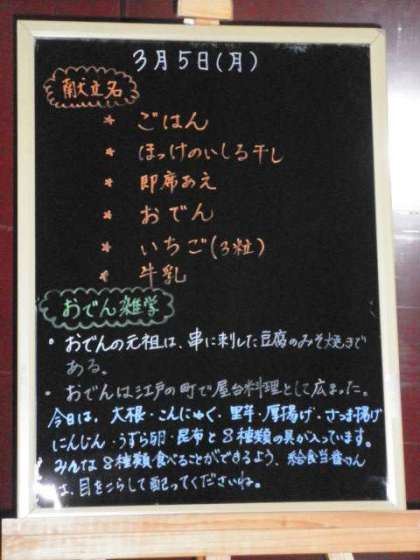 3月5日(月)
献立名
* ごはん
* ほっけのいしる干し
* 即席あえ
* おでん
* いちご(3粒)
* 牛乳
おでん雑学
• おでんの元祖は、串に刺した豆腐のみそ焼きで
ある。
• おでんは江戸の町で屋台料理として広まった。
今日は、大根・こんにゃく・里芋・厚揚げ・さつま揚げ
にんじん・うずら卵・昆布と8種類の具が入っています。
みんな8種類食べることができるよう、給食当番さん
は、目をこらして配ってくださいね。